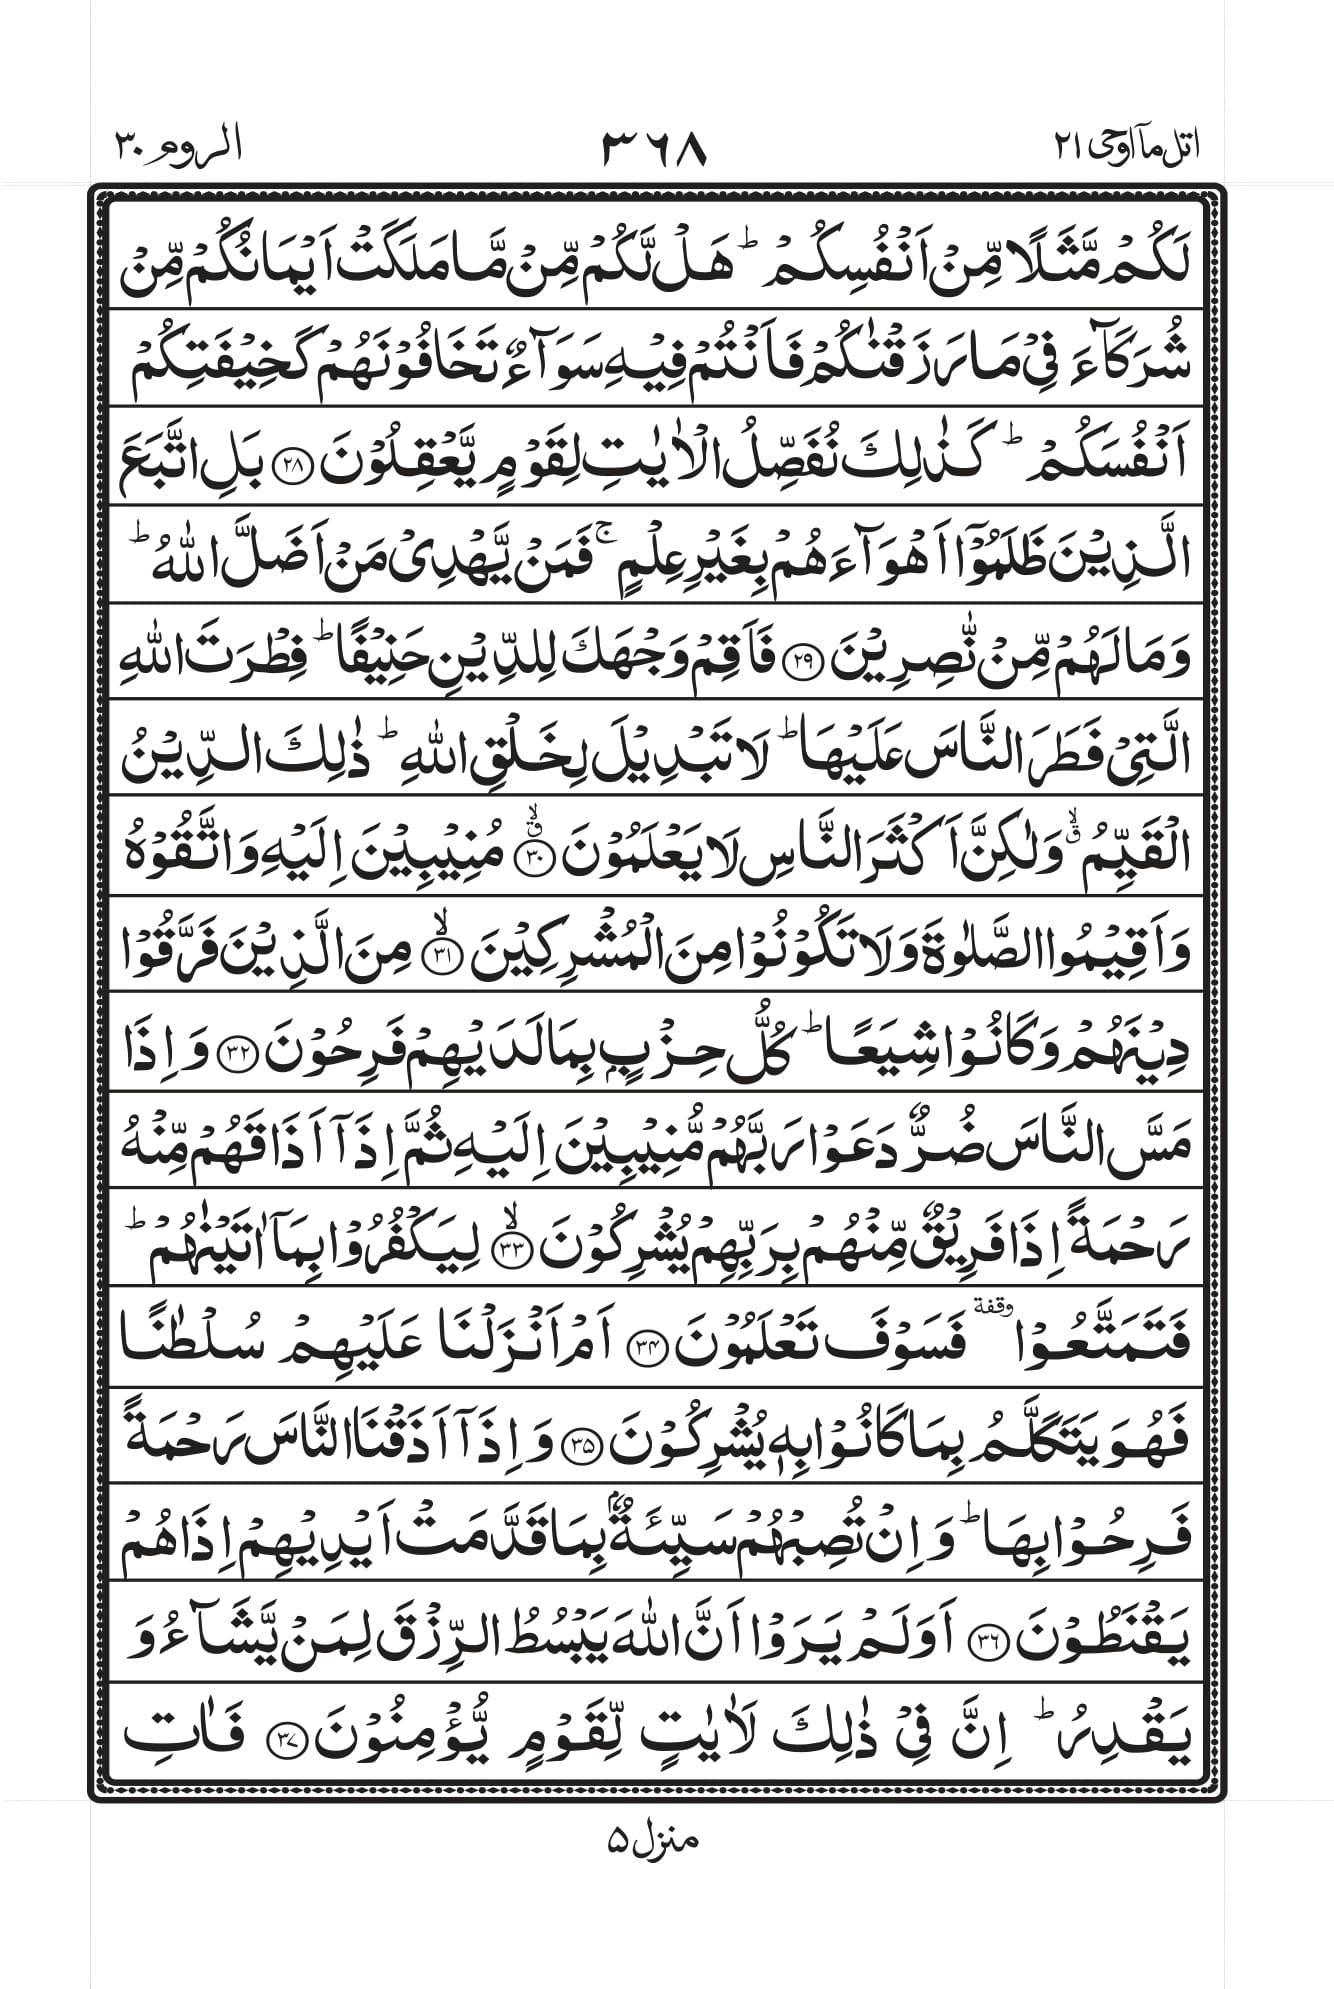 اتل ماۤ اوحی ۲۱
۳۶۸
الروم ۳۰
لَكُمْ مَّثَلًا مِّنْ اَنْفُسِكُمْ ؕ هَلْ لَّكُمْ مِّنْ مَّا مَلَكَتْ اَیْمَانُكُمْ مِّنْ
شُرَكَآءَ فِیْ مَا رَزَقْنٰكُمْ فَاَنْتُمْ فِیْهِ سَوَآءٌ تَخَافُوْنَهُمْ كَخِیْفَتِكُمْ
اَنْفُسَكُمْ ؕ كَذٰلِكَ نُفَصِّلُ الْاٰیٰتِ لِقَوْمٍ یَّعْقِلُوْنَ ﴿۲۸﴾ بَلِ اتَّبَعَ
الَّذِیْنَ ظَلَمُوْۤا اَهْوَآءَهُمْ بِغَیْرِ عِلْمٍ ۚ فَمَنْ یَّهْدِیْ مَنْ اَضَلَّ اللّٰهُ ؕ
وَمَا لَهُمْ مِّنْ نّٰصِرِیْنَ ﴿۲۹﴾ فَاَقِمْ وَجْهَكَ لِلدِّیْنِ حَنِیْفًا ؕ فِطْرَتَ اللّٰهِ
الَّتِیْ فَطَرَ النَّاسَ عَلَیْهَا ؕ لَا تَبْدِیْلَ لِخَلْقِ اللّٰهِ ؕ ذٰلِكَ الدِّیْنُ
الْقَیِّمُ ۙۗ وَلٰكِنَّ اَكْثَرَ النَّاسِ لَا یَعْلَمُوْنَ ﴿۳۰﴾ ۙۗ مُنِیْبِیْنَ اِلَیْهِ وَاتَّقُوْهُ
وَاَقِیْمُوا الصَّلٰوةَ وَلَا تَكُوْنُوْا مِنَ الْمُشْرِكِیْنَ ﴿۳۱﴾ ۙ مِنَ الَّذِیْنَ فَرَّقُوْا
دِیْنَهُمْ وَكَانُوْا شِیَعًا ؕ كُلُّ حِزْبٍۭ بِمَا لَدَیْهِمْ فَرِحُوْنَ ﴿۳۲﴾ وَاِذَا
مَسَّ النَّاسَ ضُرٌّ دَعَوْا رَبَّهُمْ مُّنِیْبِیْنَ اِلَیْهِ ثُمَّ اِذَاۤ اَذَاقَهُمْ مِّنْهُ
رَحْمَةً اِذَا فَرِیْقٌ مِّنْهُمْ بِرَبِّهِمْ یُشْرِكُوْنَ ﴿۳۳﴾ ۙ لِیَكْفُرُوْا بِمَاۤ اٰتَیْنٰهُمْ ؕ
فَتَمَتَّعُوْا وقفة فَسَوْفَ تَعْلَمُوْنَ ﴿۳۴﴾ اَمْ اَنْزَلْنَا عَلَیْهِمْ سُلْطٰنًا
فَهُوَ یَتَكَلَّمُ بِمَا كَانُوْا بِهٖ یُشْرِكُوْنَ ﴿۳۵﴾ وَاِذَاۤ اَذَقْنَا النَّاسَ رَحْمَةً
فَرِحُوْا بِهَا ؕ وَاِنْ تُصِبْهُمْ سَیِّئَةٌۢ بِمَا قَدَّمَتْ اَیْدِیْهِمْ اِذَا هُمْ
یَقْنَطُوْنَ ﴿۳۶﴾ اَوَلَمْ یَرَوْا اَنَّ اللّٰهَ یَبْسُطُ الرِّزْقَ لِمَنْ یَّشَآءُ وَ
یَقْدِرُ ؕ اِنَّ فِیْ ذٰلِكَ لَاٰیٰتٍ لِّقَوْمٍ یُّؤْمِنُوْنَ ﴿۳۷﴾ فَاٰتِ
منزل ۵